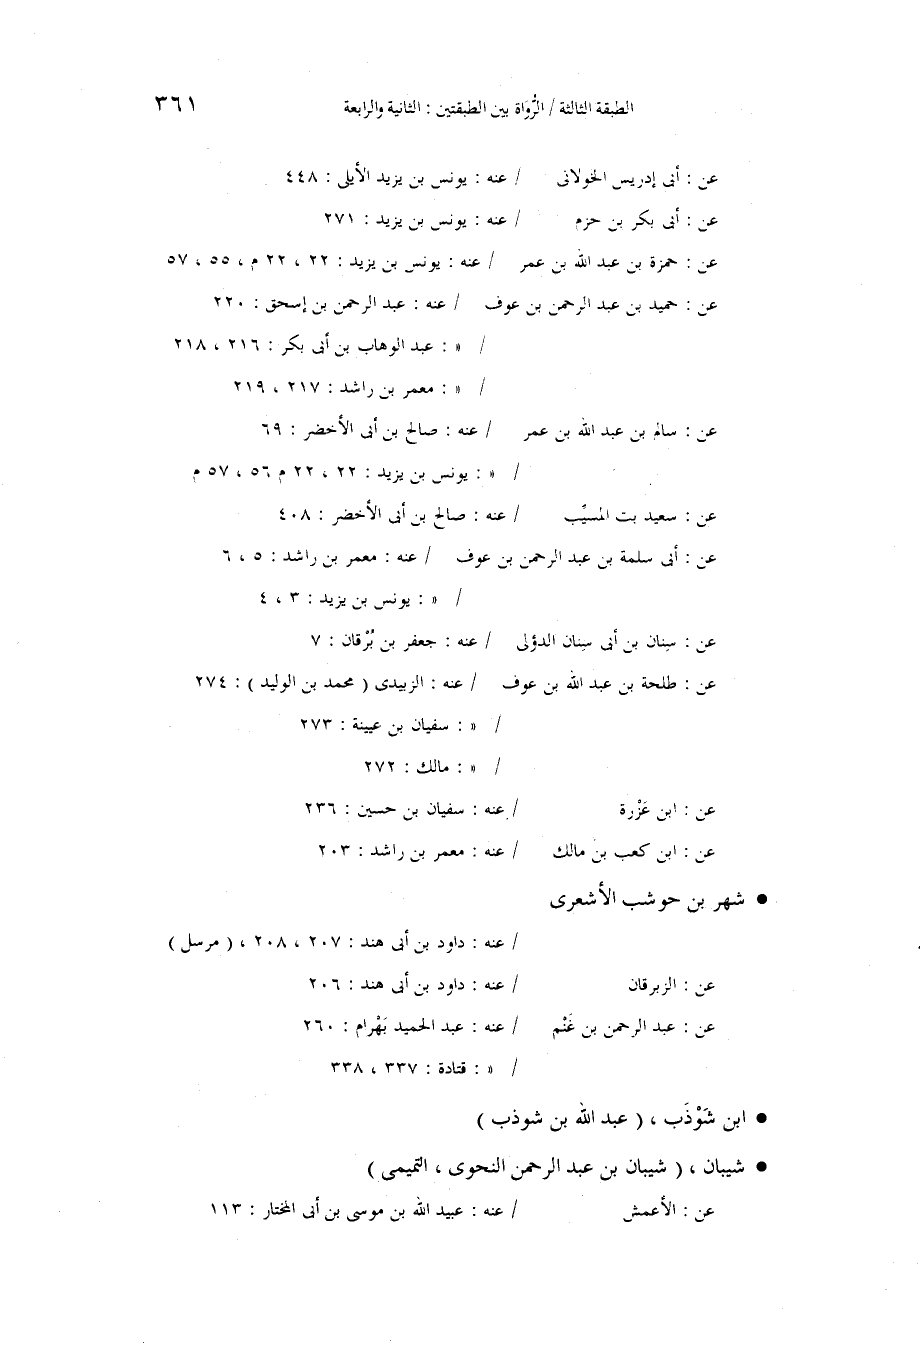 الطبقة الثالثة / الرُّوَاة بين الطبقتين : الثانية والرابعة ٣٦١
عن : أبى إدريس الخولانى / عنه : يونس بن يزيد الأيلى : ٤٤٨
عن : أبى بكر بن حزم / عنه : يونس بن يزيد : ٢٧١
عن : حمزة بن عبد الله بن عمر / عنه : يونس بن يزيد : ٢٢ ، ٢٢ م ، ٥٥ ، ٥٧
عن : حميد بن عبد الرحمن بن عوف / عنه : عبد الرحمن بن إسحق : ٢٢٠
/ « : عبد الوهاب بن أبى بكر : ٢١٦ ، ٢١٨
/ « : معمر بن راشد : ٢١٧ ، ٢١٩
عن : سالم بن عبد الله بن عمر / عنه : صالح بن أبى الأخضر : ٦٩
/ « : يونس بن يزيد : ٢٢ ، ٢٢ م ٥٦ ، ٥٧ م
عن : سعيد بت المسيِّب / عنه : صالح بن أبى الأخضر : ٤٠٨
عن : أبى سلمة بن عبد الرحمن بن عوف / عنه : معمر بن راشد : ٥ ، ٦
/ « : يونس بن يزيد : ٣ ، ٤
عن : سِنان بن أبى سِنان الدؤلى / عنه : جعفر بن بُرْقان : ٧
عن : طلحة بن عبد الله بن عوف / عنه : الزبيدى ( محمد بن الوليد ) : ٢٧٤
/ « : سفيان بن عيينة : ٢٧٣
/ « : مالك : ٢٧٢
عن : ابن عَزْرة / عنه : سفيان بن حسين : ٢٣٦
عن : ابن كعب بن مالك / عنه : معمر بن راشد : ٢٠٣
● شهر بن حوشب الأشعرى
/ عنه : داود بن أبى هند : ٢٠٧ ، ٢٠٨ ، ( مرسل )
عن : الزبرقان / عنه : داود بن أبى هند : ٢٠٦
عن : عبد الرحمن بن غَنْم / عنه : عبد الحميد بَهْرام : ٢٦٠
/ « : قتادة : ٣٣٧ ، ٣٣٨
● ابن شَوْذَب ، ( عبد الله بن شوذب )
● شيبان ، ( شيبان بن عبد الرحمن النحوى ، التميمى )
عن : الأعمش / عنه : عبيد الله بن موسى بن أبى المختار : ١١٣